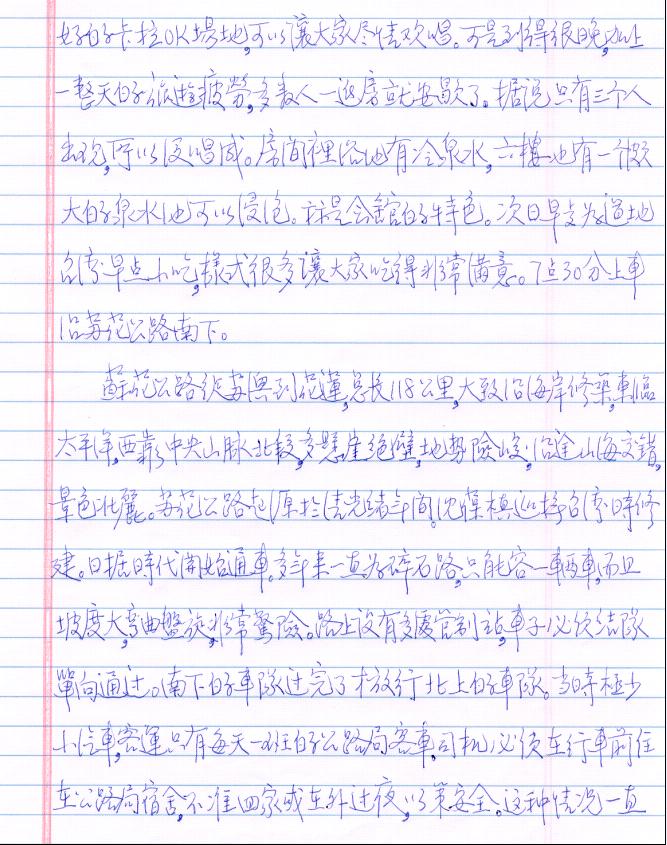 好的卡拉OK場地,可以讓大家尽情欢唱。可是到得很晚,加上
一整天的旅遊疲勞,多数人一進房就安歇了。据说只有三个人
出现,所以没唱成。房间裡浴池有冷泉水,六樓也有一個較
大的泉水池可以浸泡。這是会館的特色。次日早支为道地
台湾早点小吃,樣式很多讓大家吃得非常満意。7点30分上車
沿苏花公路南下。
蘇花公路從苏澳到花蓮,总长118公里,大致沿海岸修築,東臨
太平洋,西靠中央山脉,北段多懸崖絕壁,地勢險峻,沿途山海交錯,
景色壮麗。苏花公路起原於清光緒年间,沈葆楨巡撫台湾時修
建。日据時代開始通車。多年来一直为碎石路,只能容一車両車,而且
坡度大,弯曲盤旋,非常驚險。路上设有多處管制站,車子必须结隊
單向通过。南下的車隊过完了才放行北上的車隊。当時極少
小汽車,客運只有每天一班的公路局客車,司机必须在行車前住
在公路局宿舍,不准回家或在外过夜,以策安全。这种情况一直